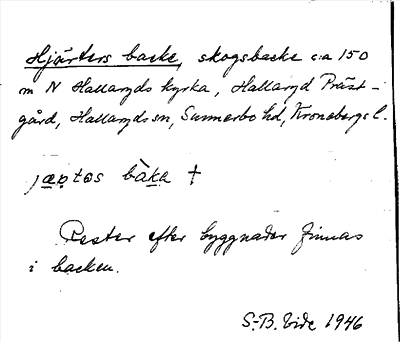 Hjärters backe, skogsbacke c:a 150
m N Hallaryds kyrka, Hallaryd Präst-
gård, Hallaryds sn, Sunnerbo hd, Kronobergs l.
jæp̣tas bàka †
Rester efter byggnader finnas
i backen.
S.-B. Vide 1946